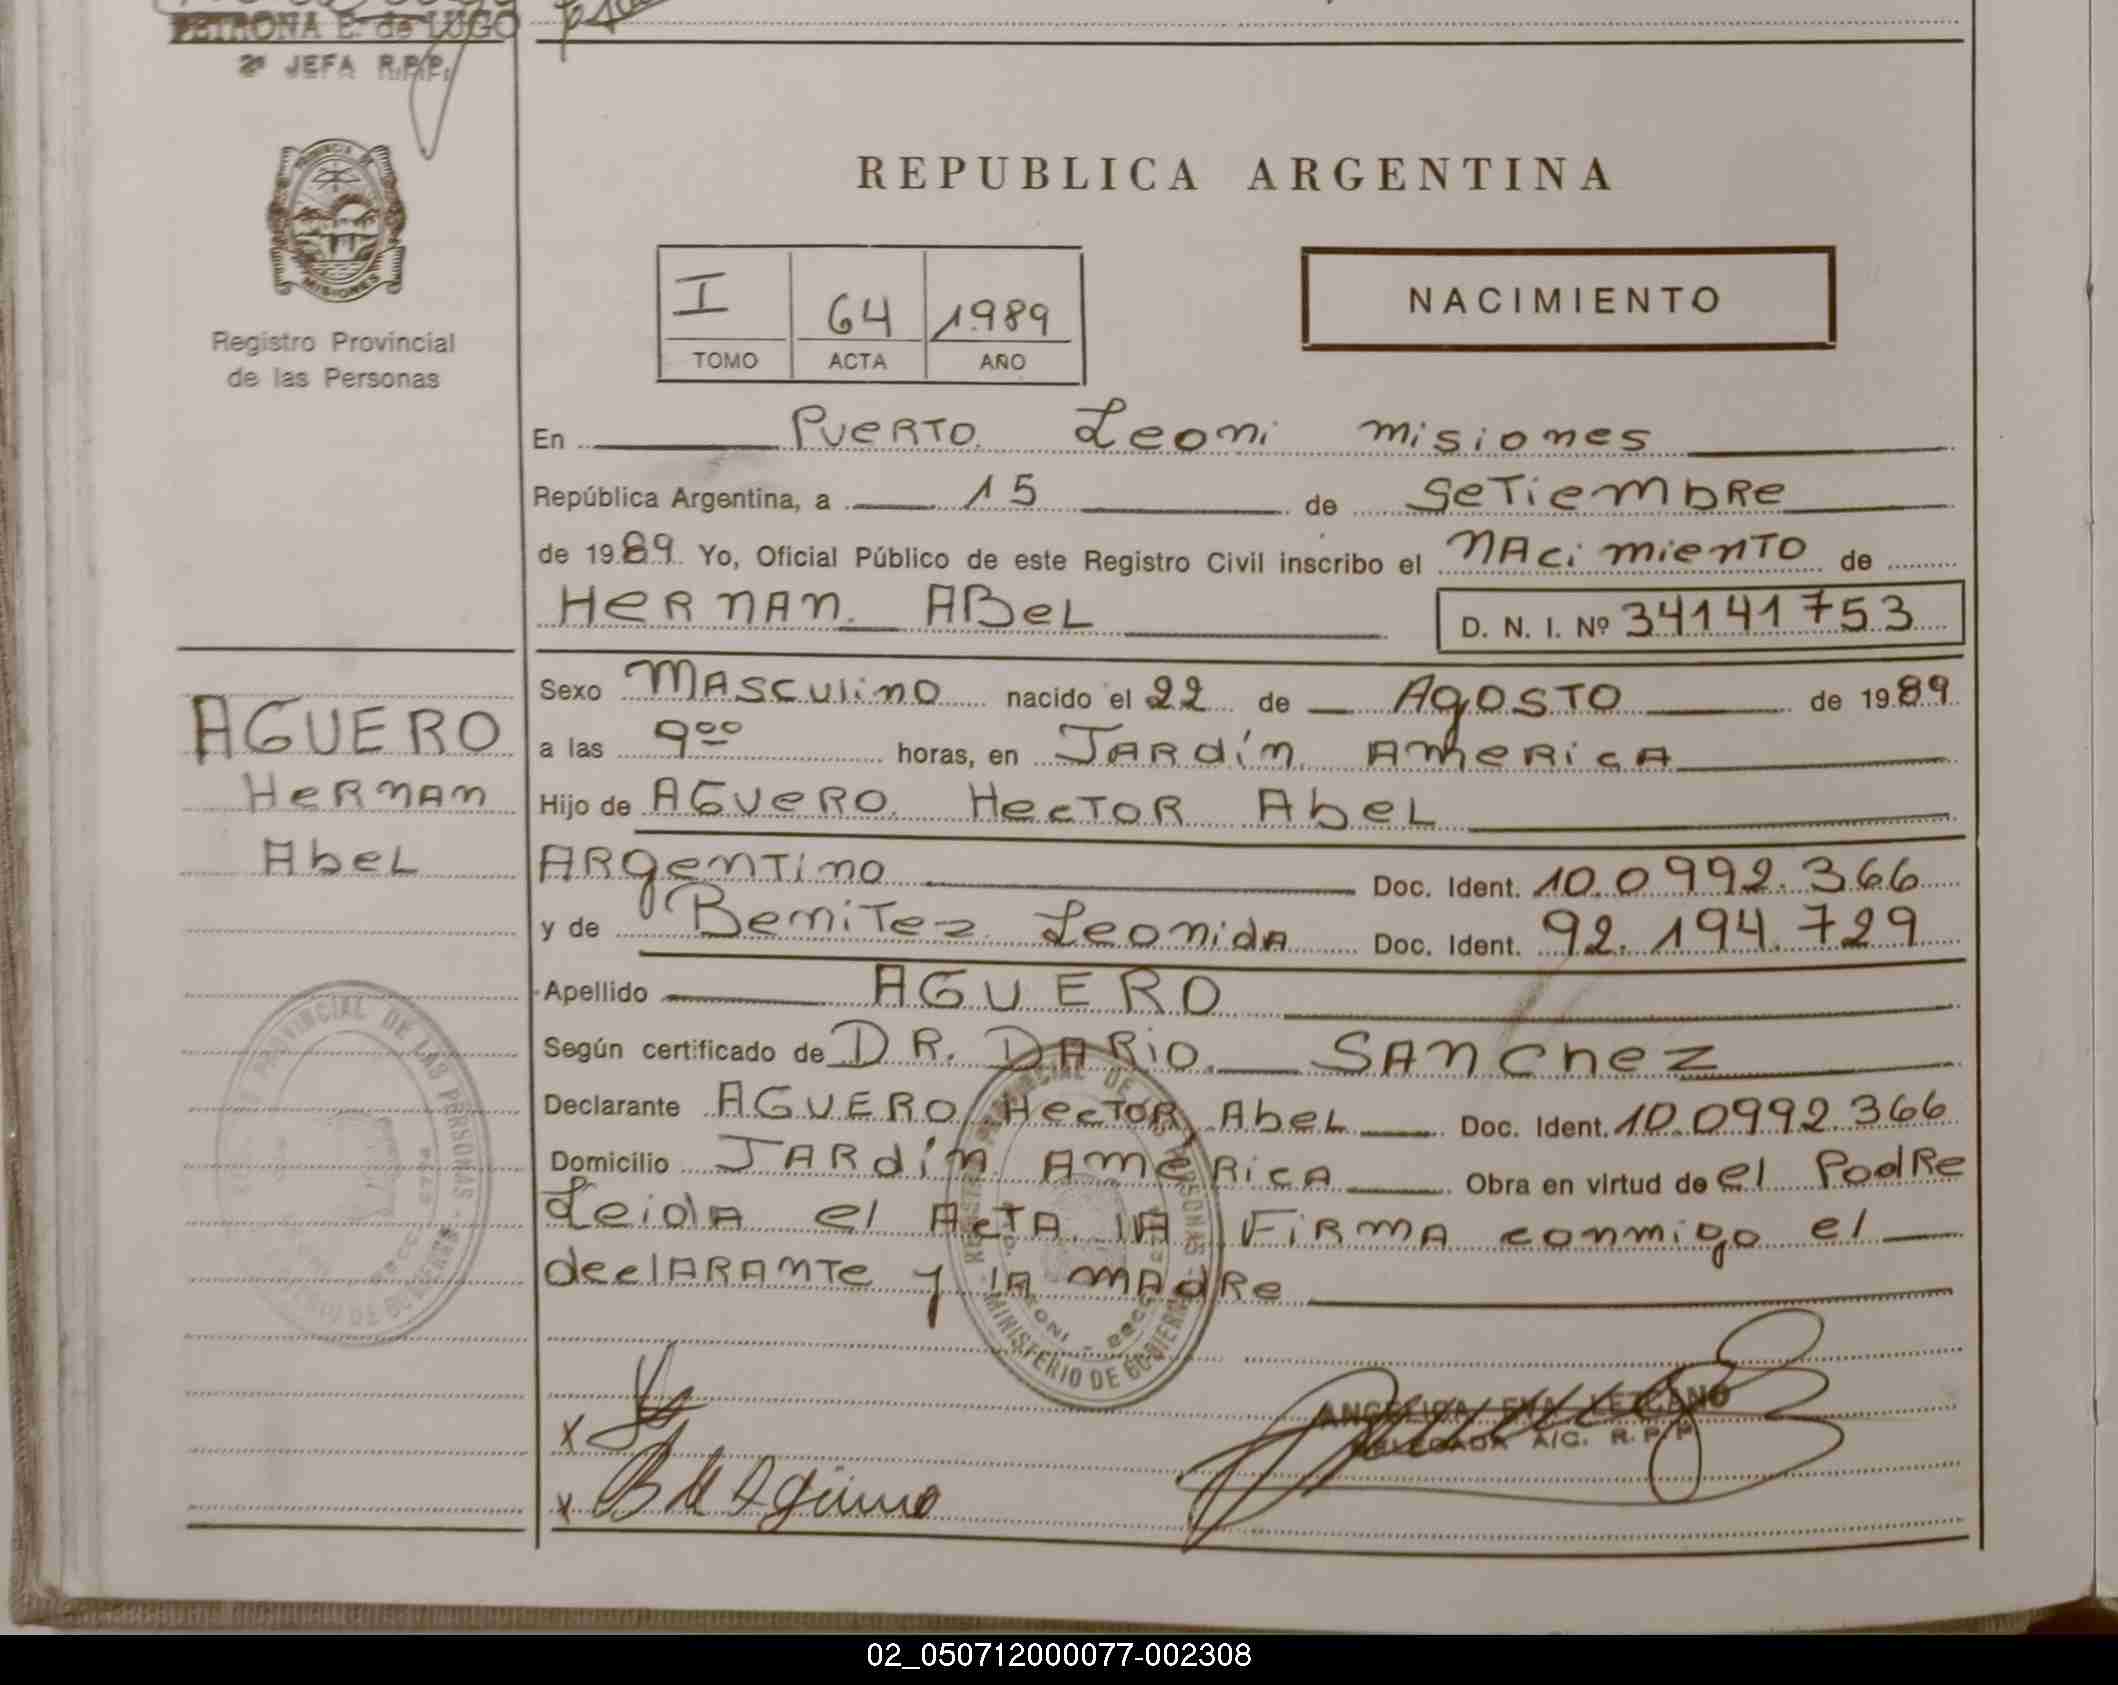 PETRONA E. de LUGO
2ª JEFA R.P.P.
PROVINCIA DE
MISIONES
Registro Provincial
de las Personas
REPUBLICA ARGENTINA
I 64 1989
TOMO ACTA AÑO
NACIMIENTO
En Puerto Leoni misiones
República Argentina, a 15 de Setiembre
de 1989. Yo, Oficial Público de este Registro Civil inscribo el nacimiento de
Hernan Abel D. N. I. Nº 34141753
Sexo Masculino nacido el 22 de Agosto de 1989
a las 9⁰⁰ horas, en Jardín America
AGUERO
Hernan
Abel
Hijo de Aguero Hector Abel
Argentino Doc. Ident. 10.0992.366
y de Benitez Leonida Doc. Ident. 92.194.729
Apellido AGUERO
Según certificado de DR. DARIO SANChez
Declarante AGUERO Hector Abel Doc. Ident. 10.0992366
Domicilio Jardín America Obra en virtud de el Podre
Leida el Acta la Firma conmigo el
declarante y la madre
PROVINCIAL DE LAS PERSONAS
MINISTERIO DE GOBIERNO
ANGELICA EVA LEZCANO
DELEGADA A/C. R.P.P.
02_050712000077-002308